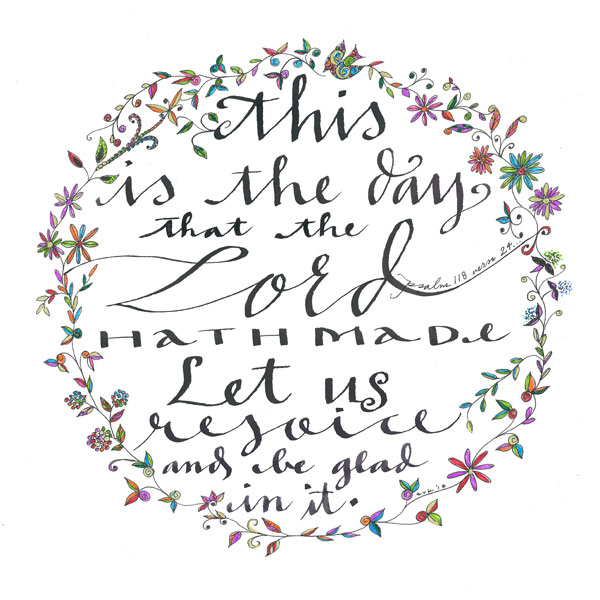 this
is the day
that the
Lord
psalm 118 verse 24...
HATH MADE
Let us
rejoice
and be glad
in it.